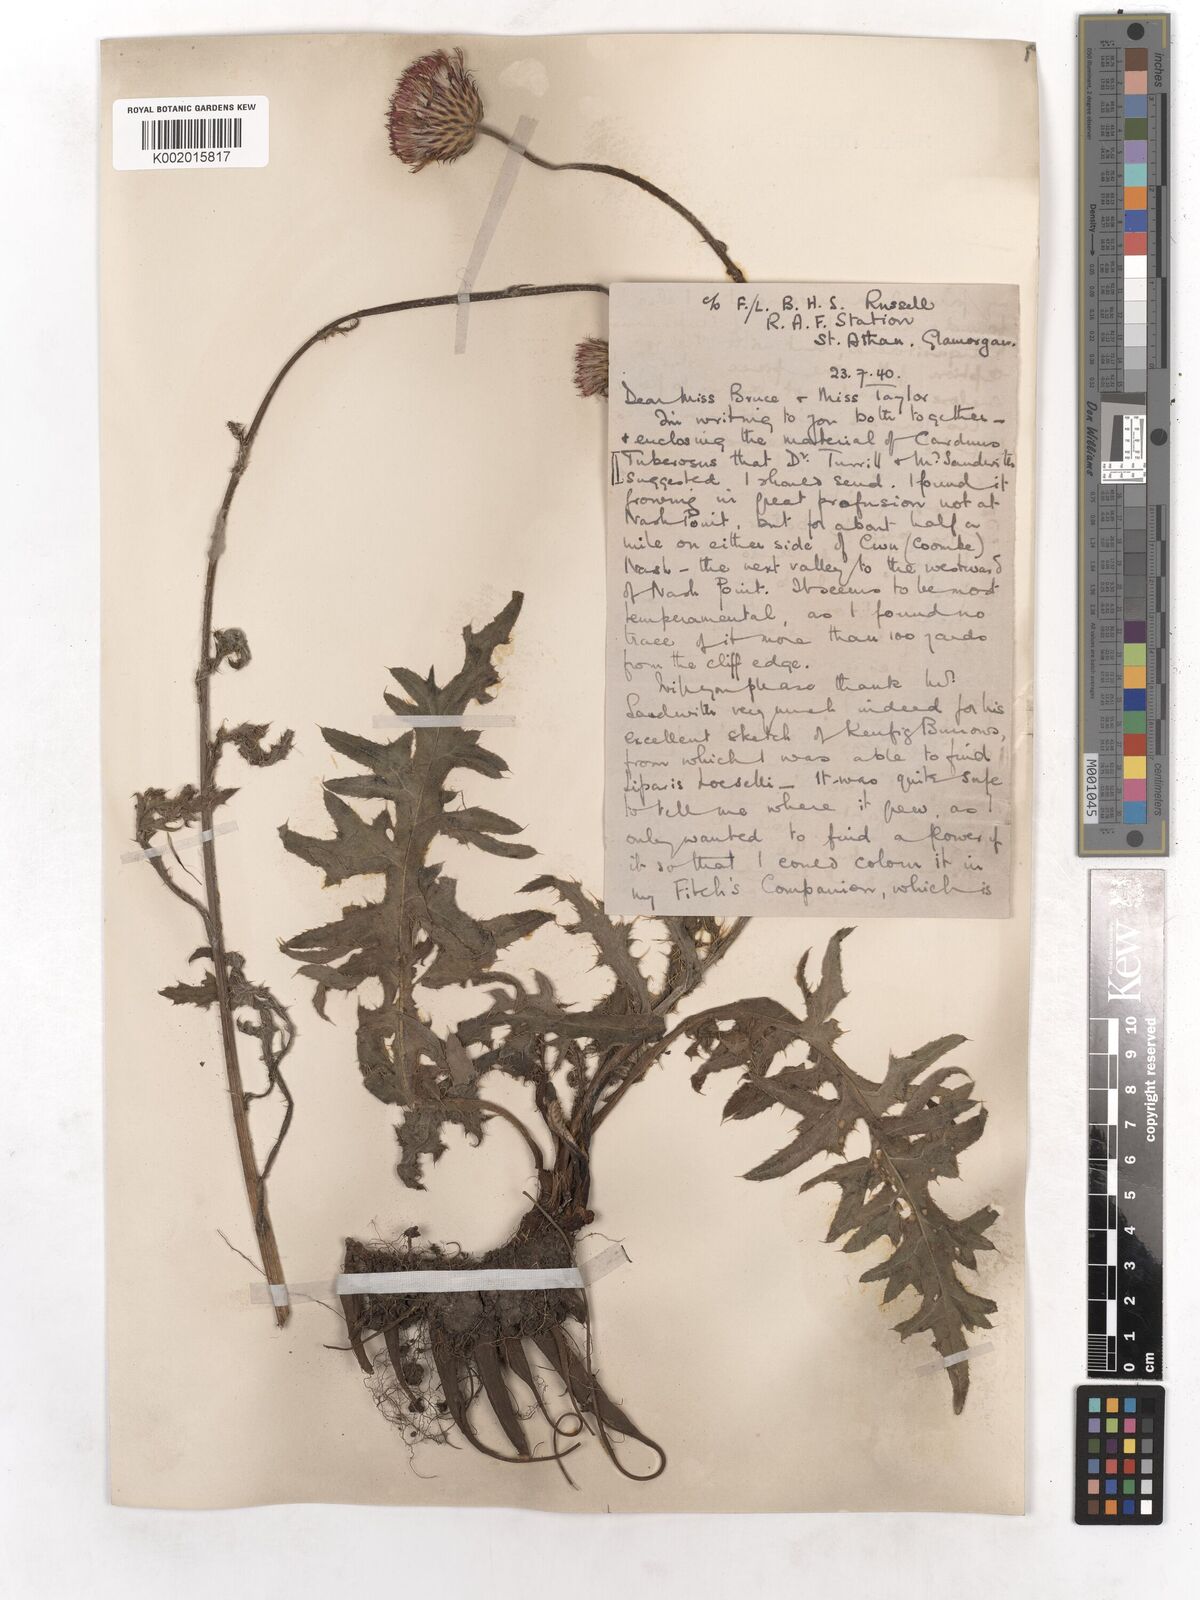 ROYAL BOTANIC GARDENS KEW
K002015817
c/o F./L. B. H. S. Russell
R. A. F. Station
St. Athan. Glamorgan.
23.7.40.
Dear Miss Bruce + Miss Taylor
I'm writing to you both together –
+ enclosing the material of Carduus
Tuberosus that Dr. Turrill & Mr. Sandwith
suggested I should send. I found it
growing in great profusion not at
Nash Point, but for about half a
mile on either side of Cwm (Coombe)
Nash – the next valley to the westward
of Nash Point. It seems to be most
temperamental, as I found no
trace of it more than 100 yards
from the cliff edge.
Will you please thank Mr.
Sandwith very much indeed for his
excellent sketch of Kenfig Burrows,
from which I was able to find
Liparis Loeselii – It was quite safe
to tell me where it grew, as I
only wanted to find a flower of
it so that I could colour it in
my Fitch's Companion, which is
inches
centimeters
Density
Don Williams
M001045
Kew
copyright reserved
0 1 2 3 4 5 6 7 8 9 10
cm